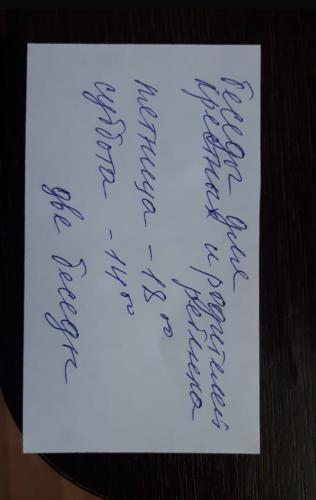 беседы для
крестных и родителей
ребенка
пятница - 18 00
суббота - 14 00
две беседы